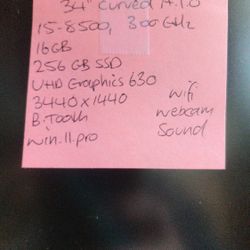 34" Curved A.I.O
i5-8500, 3.00 GHz
16GB
256 GB SSD
UHD Graphics 630
3440x1440
B.Tooth
win.11.pro
wifi
webcam
Sound